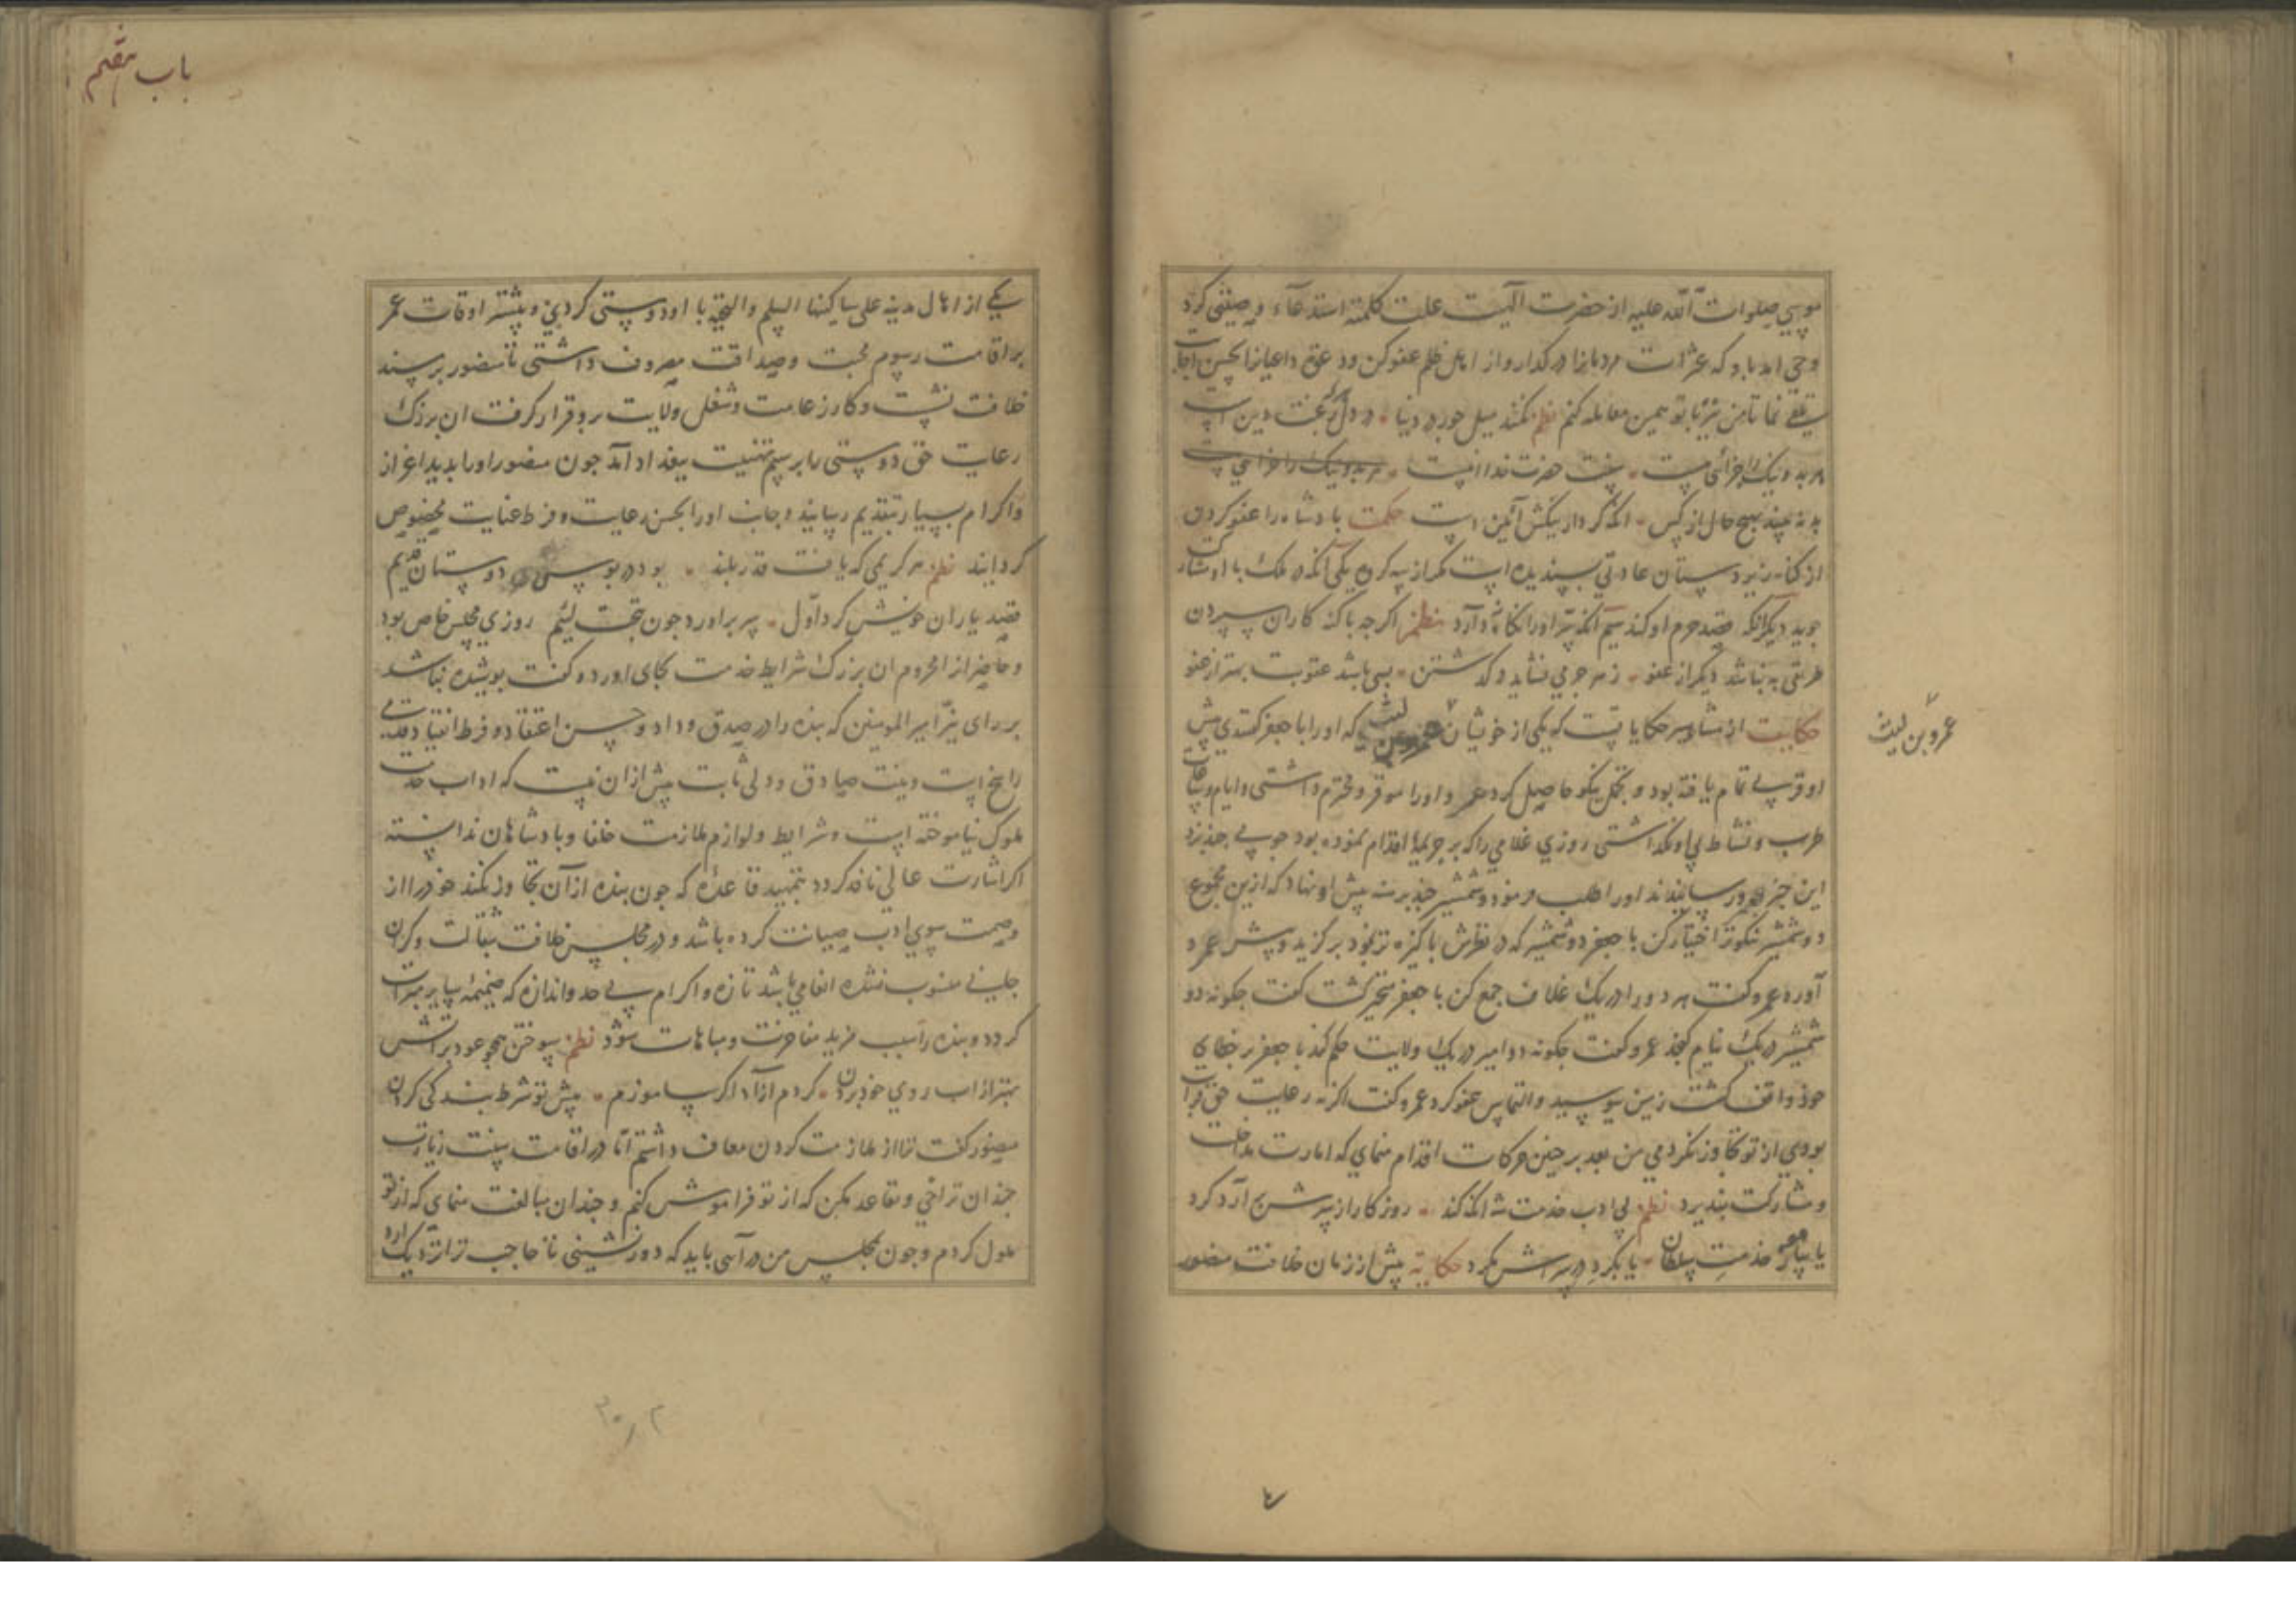 موسی صلوات الله علیه از حضرت الهیت علت کلمته استدعاء وصیتی کرد
وحی امد بدو که عثرات مردمانرا درگذار و از اهل ظلم عفو کن و دعوت داعیانرا بحسن اجابت
تلقی نما تا من نیز با تو همین معامله کنم نظم نکند میل جور در دنیا در دل رغبت دین است
هر بد و نیک را جزائی هست سنت حضرت خدا اینست
بد نه بیند بهیچ حال از کس انکه کردار نیکش آئین است حکمت بادشاه را عفو کردن
از کناه زیردستان عادتی بسندیده است مکر از سه کروه یکی آنکه در ملک با او مشارکت
جوید دیکر آنکه قصد حرم او کند سیم آنکه سر او را آشکارا دارد نظم اکرجه با کنه کاران سپردن
طریقی به نباشد دیکر از عفو زهر جرمی نشاید در کذشتن بسی باشد عقوبت بهتر از عفو
حکایت از مشاهیر حکایات است که یکی از خویشان عمرو لیث که او را با جعفر کفتندی پیش
عمرو بن لیث
او قربتی تمام یافته بود و تجمل نیکو حاصل کرد عمرو او را موقر و محترم داشتی و ایام و اوقات
طرب و نشاط بی او نکذاشتی روزی غلامی را که بر جریمها اقدام نموده بود جوبی جند بزد
این خبر بعمرو رسانیدند او را طلب فرمود و شمشیر جند برهنه پیش او نهاد که ازین مجموع
دو شمشیر نیکوتر اختیار کن با جعفر دو شمشیر که در نظرش باکیزه تر نمود بر کزید و پیش عمرو
آورد عمرو کفت هر دو را در یک غلاف جمع کن با جعفر متحیر کشت کفت جکونه دو
شمشیر در یک نیام کنجد عمرو کفت جکونه دو امیر در یک ولایت حکم کند با جعفر بر خطای
خود واقف کشت زمین ببوسید و التماس عفو کرد عمرو کفت اکر نه رعایت حق قرابت
بودی از تو تجاوز نکردمی من بعد بر جنین حرکات اقدام منمای که امارت مداخلت
و مشارکت نبذیرد نظم بی ادب خدمت شه انکه کند روزکار از سرش برآرد کرد
یا بیاموز خدمت سلطان یا بکرد در سراش مکرد حکایة پیش از زمان خلافت منصور
باب هفتم
یکی از اهال مدینه علی ساکنها السلم والتحیة با او دوستی کردی و بیشتر اوقات عمر
بر اقامت رسوم محبت و صداقت مصروف داشتی تا منصور بر مسند
خلافت نشست و کار زعامت و شغل ولایت برو قرار کرفت ان بزرک
رعایت حق دوستی را برسم تهنیت ببغداد آمد جون منصور او را بدید اعزاز
و اکرام بسیار بتقدیم رسانید و جانب او را بحسن رعایت و فرط عنایت مخصوص
کردانید نظم هر کریمی که یافت قدر بلند بود در بوس دوستان قدیم
قصد یاران خویش کرد اول سر برآورد جون بتخت لئیم روزی مجلس خاص بود
و حاضران محروم ان بزرک شرایط خدمت بجای اورد و کفت بوشیده نباشد
بر رای نیر امیر المومنین که بنده را در صدق وداد و حسن اعتقاد و فرط انقیاد قدمی
راسخ است و نیت صادق و دلی ثابت بیش ازان نیست که اداب خدمت
ملوک نیاموخته است و شرایط و لوازم ملازمت خلفا و بادشاهان ندانسته
اکر اشارت عالی نافذ کردد بتمهید قاعدهٔ که جون بنده از آن تجاوز نکند خود را از
وصمت سوی ادب صیانت کرده باشد و در مجلس خلافت بثقالت و کران
جانی منسوب نشده انعامی باشد تازه و اکرام بی حد و اندازه که ضمیمه سایر مبرات
کردد و بنده را سبب مزید مفاخرت و مباهات شود نظم سوختن همجو عود بر آتش
بهتر از اب روی خود بردن کردم آزاد اکر بیاموزم پیش تو شرط بندکی کردن
منصور کفت ترا از ملازمت کردن معاف داشتم اما در اقامت سنت زیارت
جندان تراخی و تقاعد مکن که از تو فراموش کنم و جندان مبالغت منمای که از تو
ملول کردم و جون بمجلس من در آئی باید که دور نشینی تا حاجب ترا نزدیک آرد